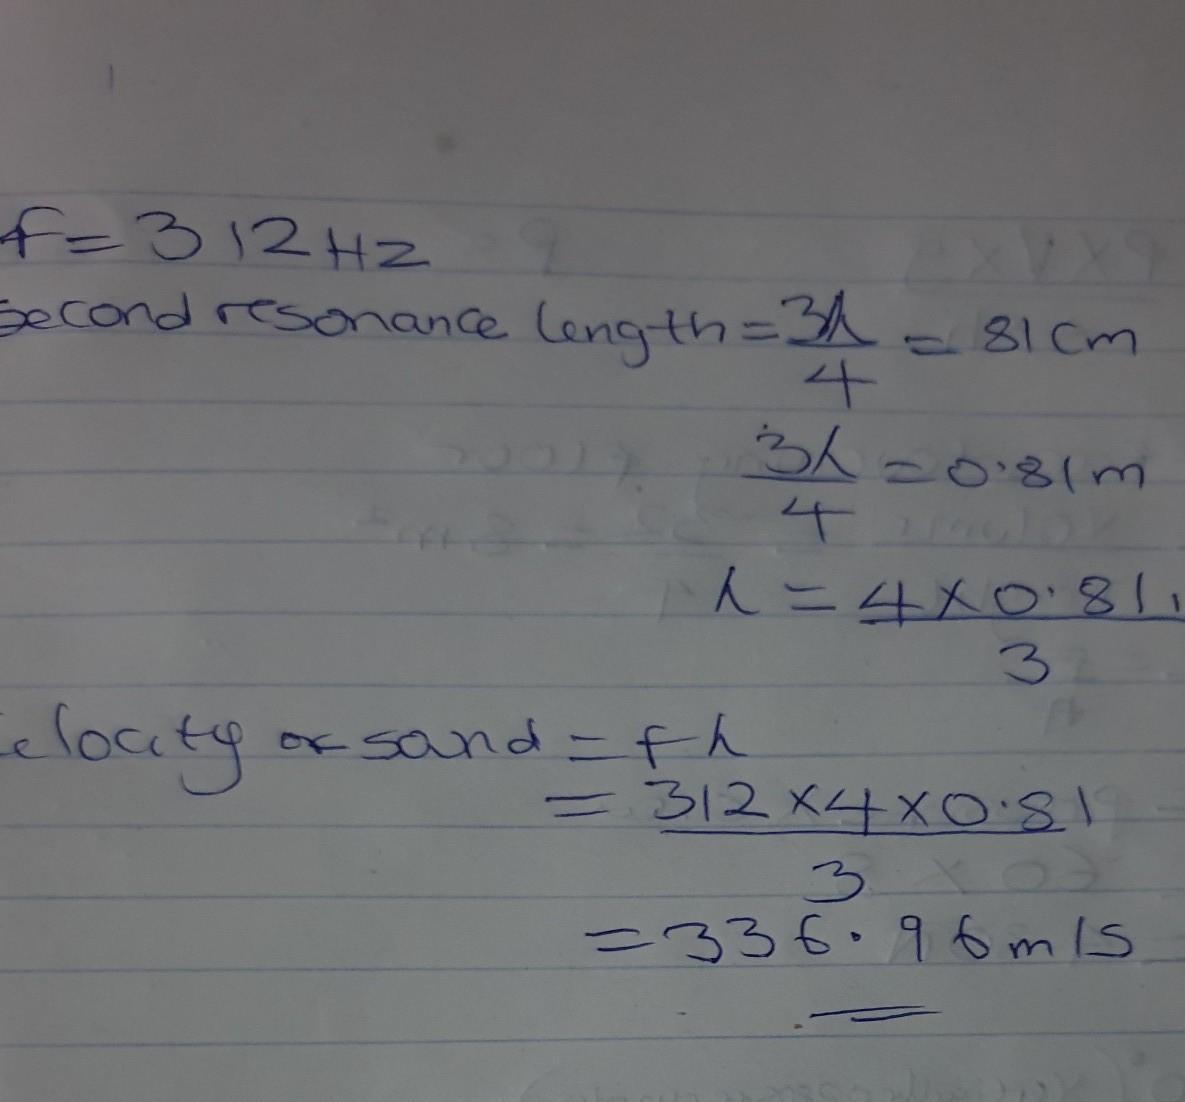 f = 312Hz
Second resonance length = 3λ/4 = 81cm
3λ/4 = 0.81m
λ = 4×0.81/3
elocity of sand = fλ
= 312×4×0.81/3
= 336.96m/s